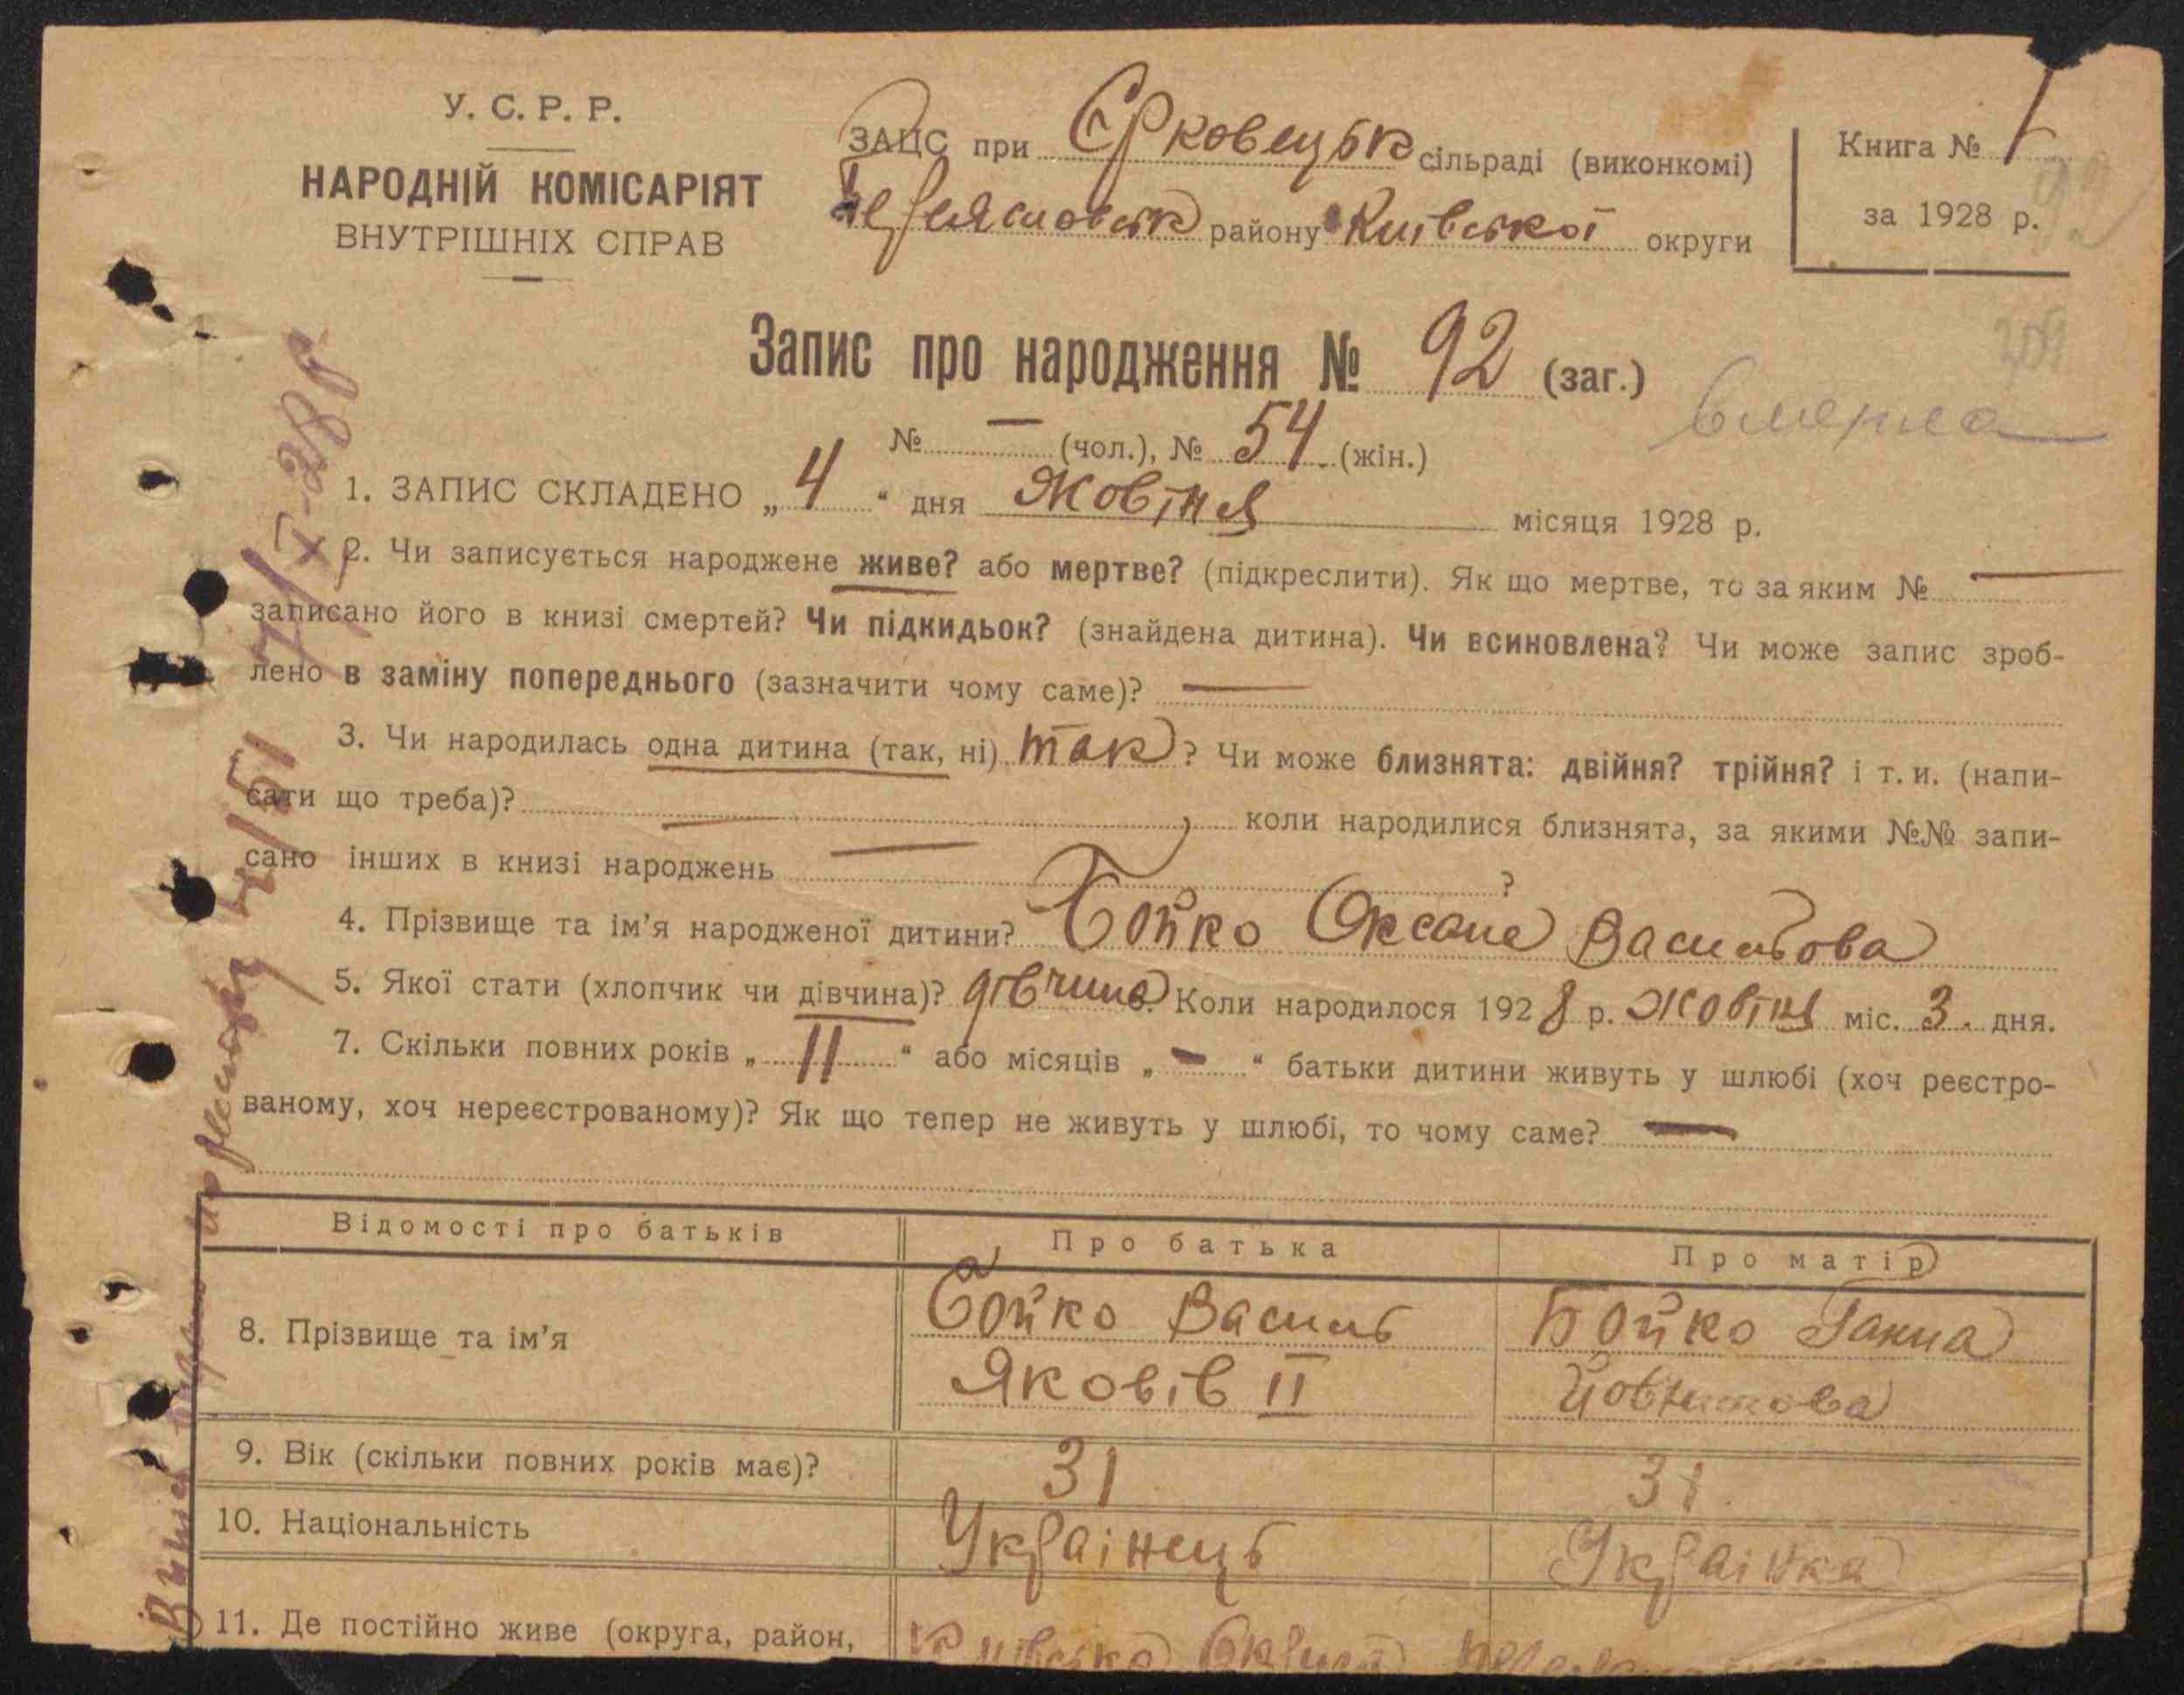 У. С. Р. Р.
НАРОДНІЙ КОМІСАРІЯТ
ВНУТРІШНІХ СПРАВ
ЗАЦС при Єрковецьк сільраді (виконкомі)
Переясловськ району Київської округи
Книга № 1
за 1928 р.
92
309
Запис про народження № 92 (заг.)
вмерла
№ — (чол.), № 54 (жін.)
1. ЗАПИС СКЛАДЕНО „4“ дня Жовтня місяця 1928 р.
2. Чи записується народжене живе? або мертве? (підкреслити). Як що мертве, то за яким № —
записано його в книзі смертей? Чи підкидьок? (знайдена дитина). Чи всиновлена? Чи може запис зроб-
лено в заміну попереднього (зазначити чому саме)? —
3. Чи народилась одна дитина (так, ні) так? Чи може близнята: двійня? трійня? і т. и. (напи-
сати що треба)? — коли народилися близнята, за якими №№ запи-
сано інших в книзі народжень — ?
4. Прізвище та ім’я народженої дитини? Бойко Оксана Васильова
5. Якої стати (хлопчик чи дівчина)? дівчина 6. Коли народилося 1928 р. Жовтня міс. 3. дня.
7. Скільки повних років „11“ або місяців „-“ батьки дитини живуть у шлюбі (хоч реєстро-
ваному, хоч нереєстрованому)? Як що тепер не живуть у шлюбі, то чому саме? —
Відомості про батьків
Про батька
Про матір
8. Прізвище та ім’я
Бойко Василь
Яковів II
Бойко Ганна
9. Вік (скільки повних років має)?
31
31.
10. Національність
Українець
Українка
11. Де постійно живе (округа, район,
Київська Округа